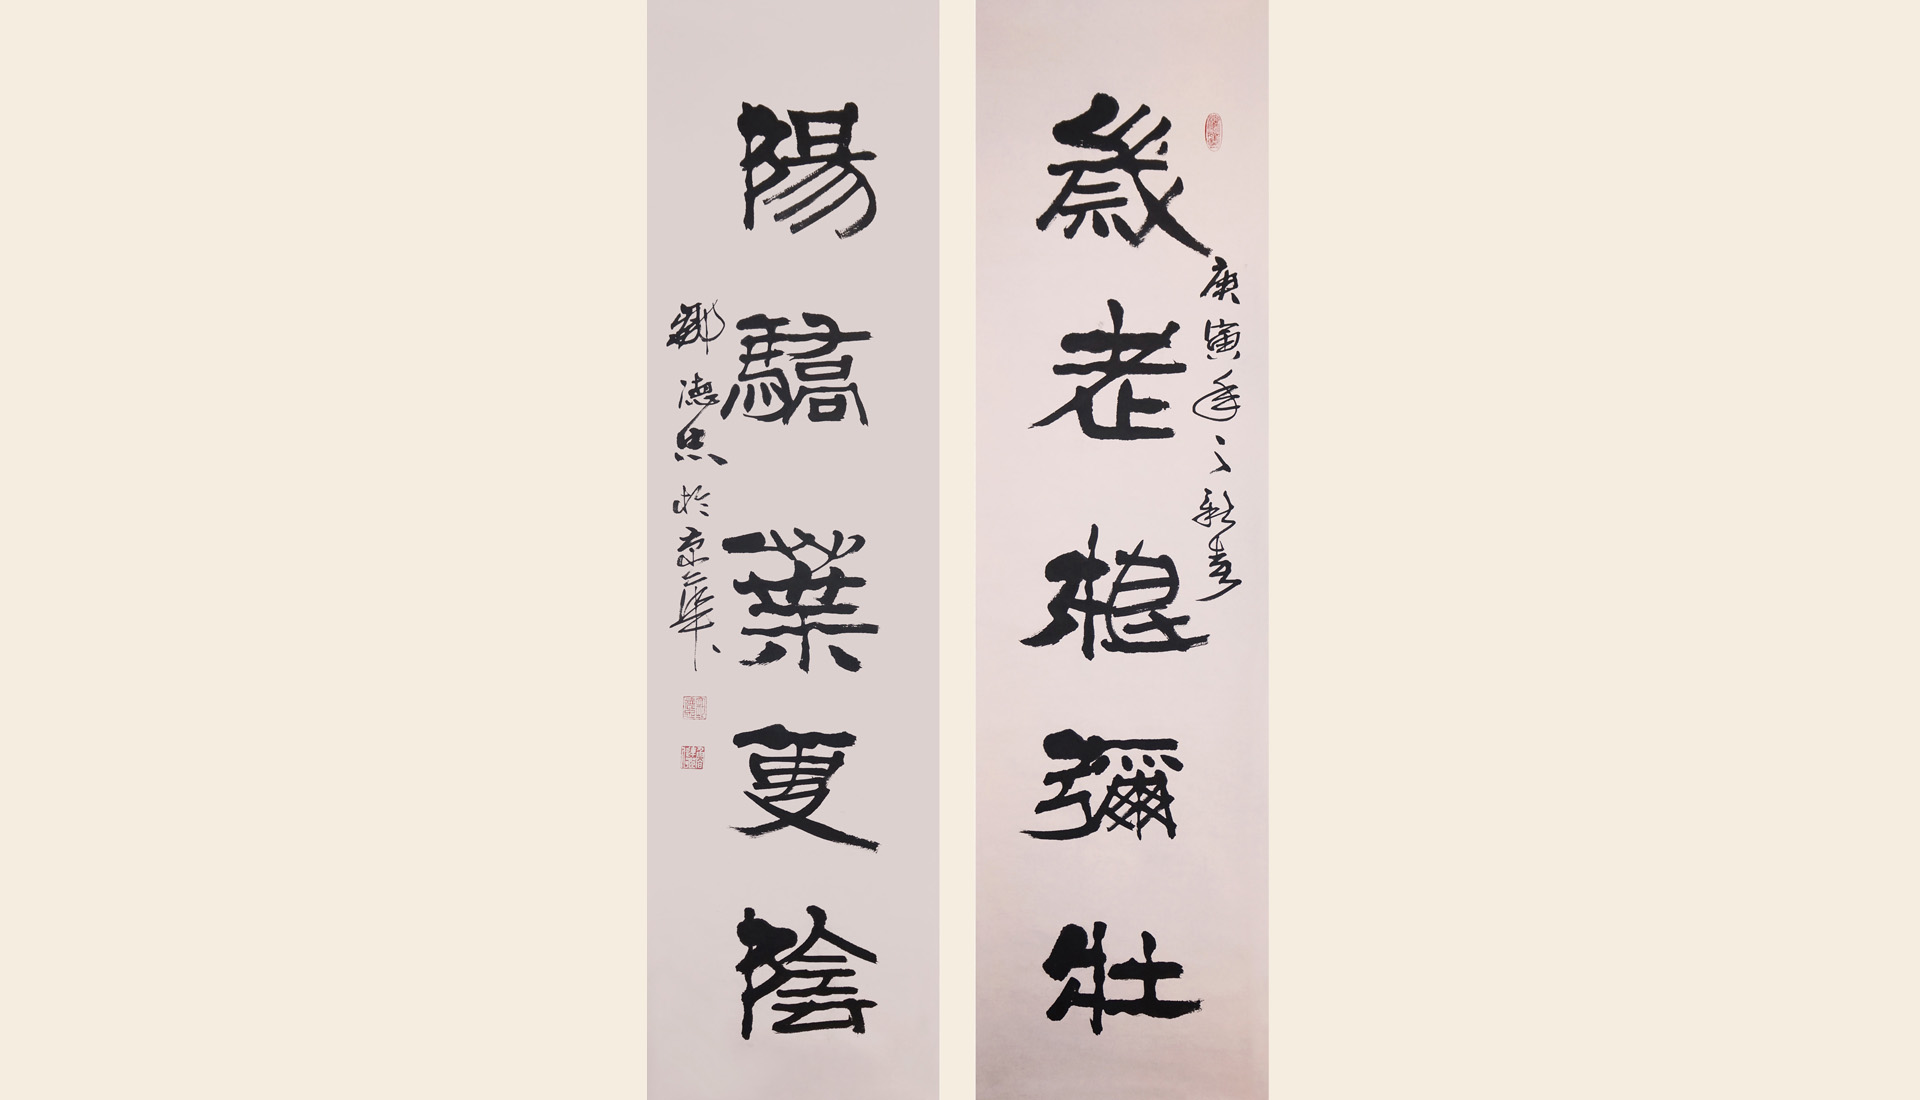 庚寅年之新春
歲老根彌壯
陽驕葉更陰
德忠於京華